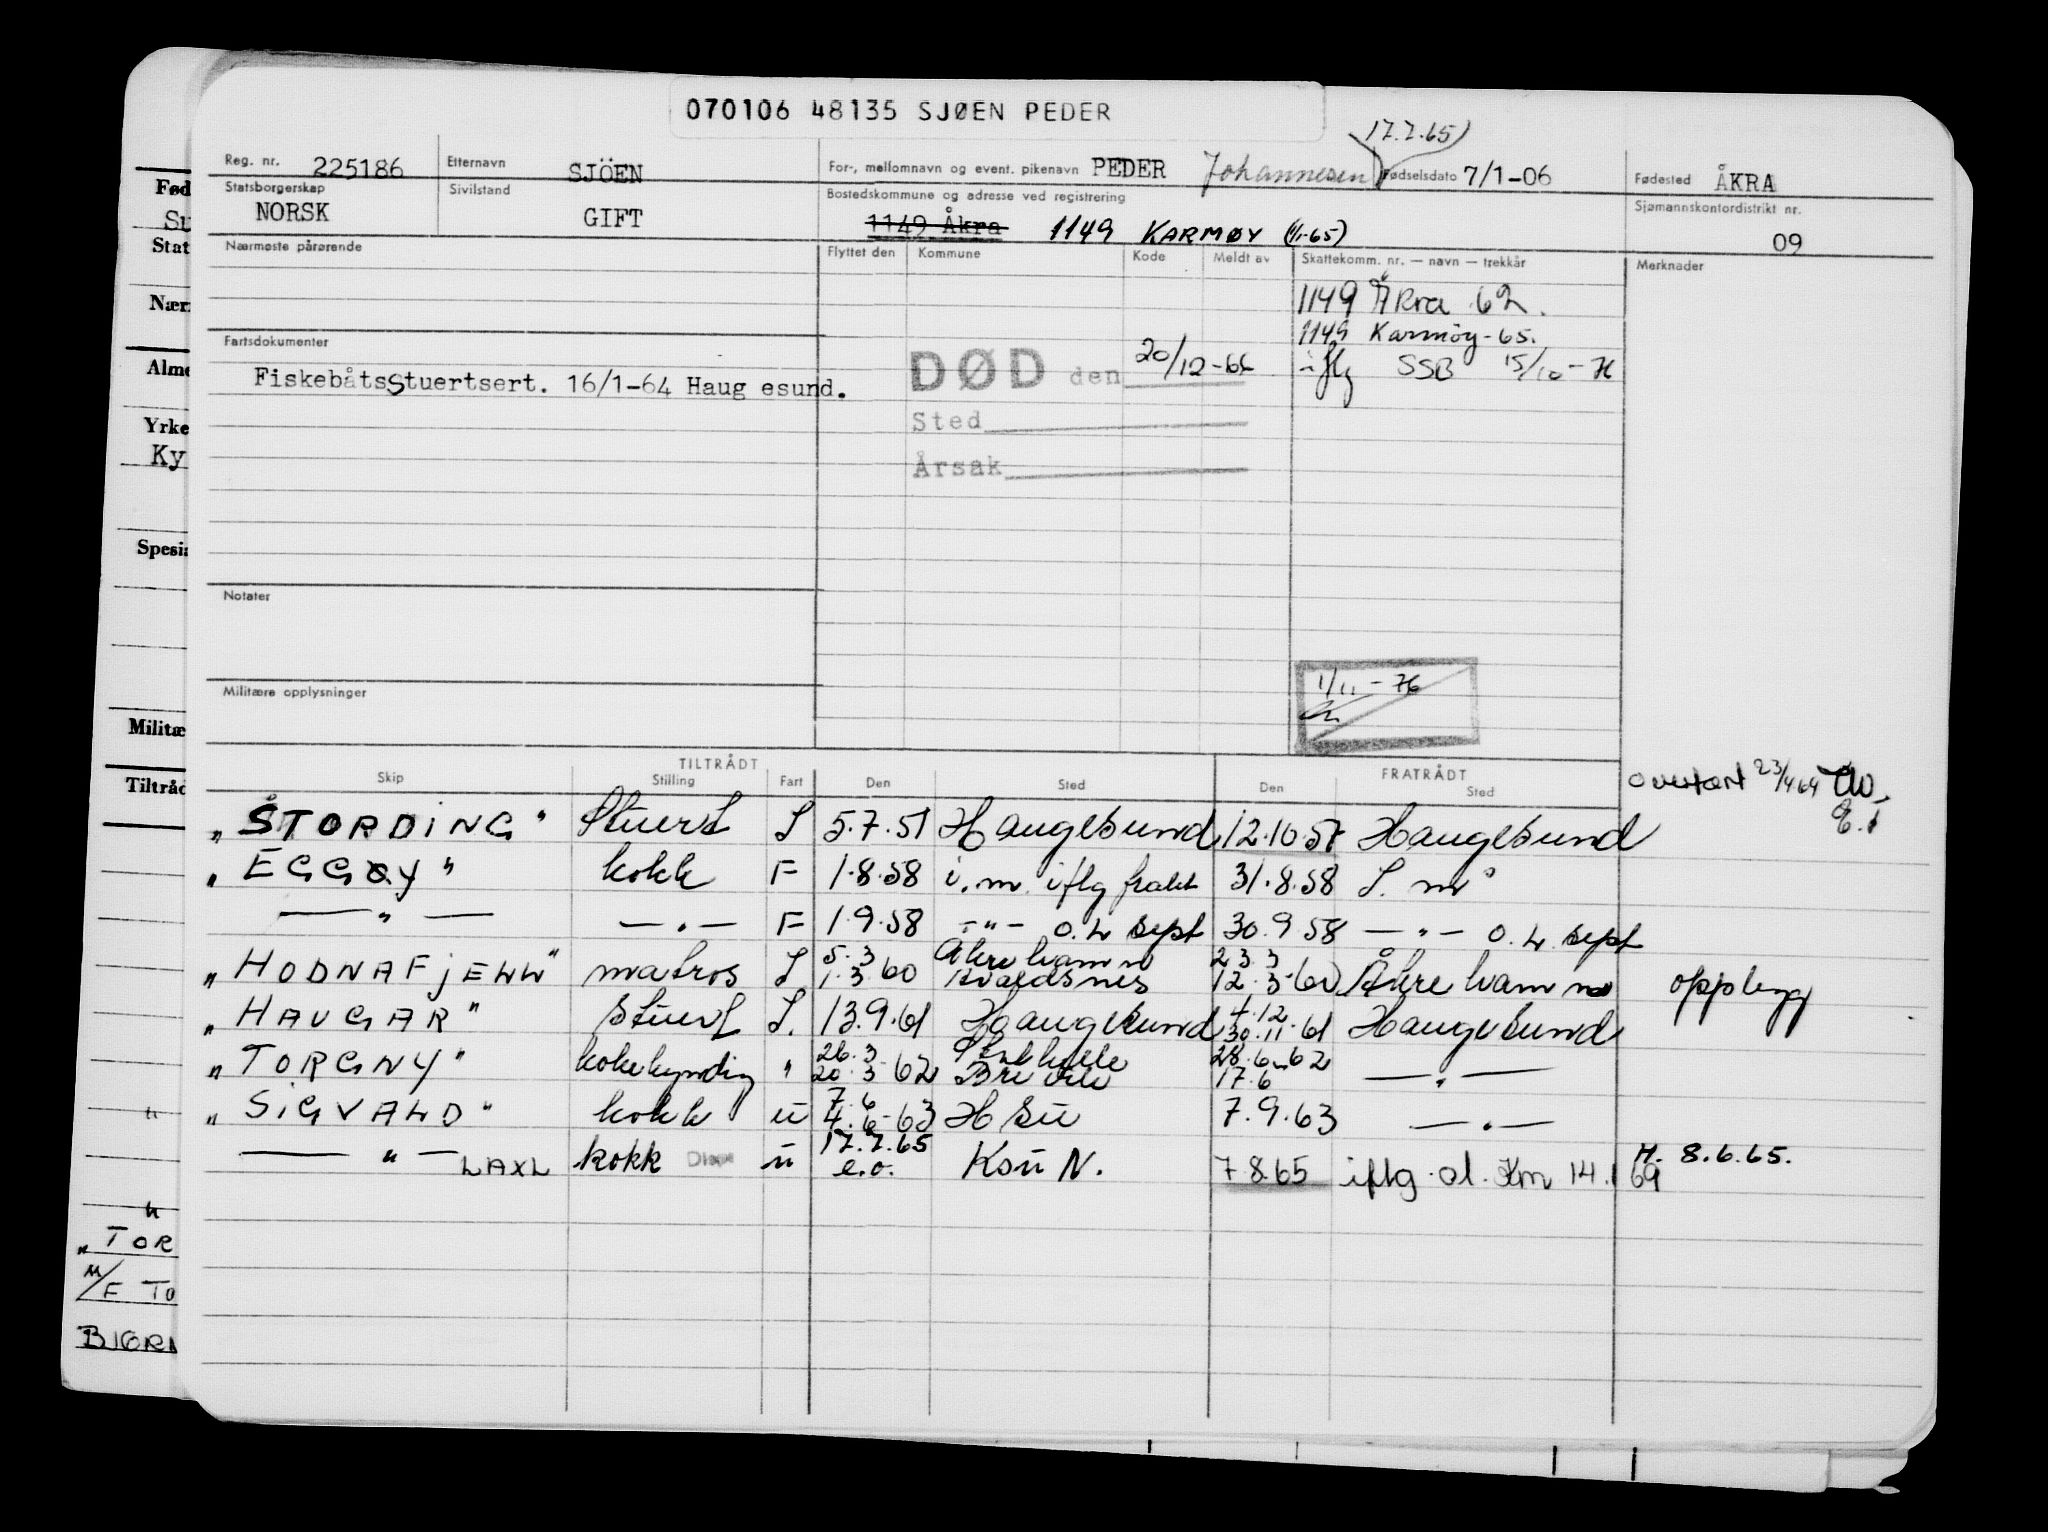 070106 48135 SJØEN PEDER
17.7.65)
Reg. nr. 225186 Etternavn SJÖEN For-, mellomnavn og event. pikenavn PEDER Johannesen Fødselsdato 7/1-06 Fødested ÅKRA
Statsborgerskap NORSK Sivilstand GIFT Bostedskommune og adresse ved registrering 1149 Åkra 1149 KARMØY (1/1-65) Sjømannskontordistrikt nr. 09
Nærmeste pårørende Flyttet den Kommune Kode Meldt av Skattekomm. nr. — navn — trekkår Merknader
1149 Åkra 62.
1149 Karmøy-65.
Fartsdokumenter
DØD den 20/12-66 iflg SSB 15/10-76
Fiskebåtsstuertsert. 16/1-64 Haug esund.
Sted
Årsak
Notater
Militære opplysninger
1/11-76
TILTRÅDT FRATRÅDT
Skip Stilling Fart Den Sted Den Sted
overført 23/4 64
"STORDING" Stuert S 5.7.51 Haugesund 12.10.57 Haugesund
"EGGØY" kokk F 1.8.58 i.m. iflg frakt 31.8.58 S. m
— " — — " — F 1.9.58 - " - o.L sept 30.9.58 — " — o.L. sept
"HODNAFJELL" matros S 5.3 1.3.60 Åkrehamn Avaldsnes 23.3 12.3.60 Åkrehamn opplegg
"HAUGAR" Stuert S. 13.9.61 Haugesund 4.12 30.11.61 Haugesund
"TORGNY" kokekyndig " 26.3 20.3.62 Brevik 28.6.62 17.6 — " —
"SIGVALD" kokk u 7.6 4.6-63 H Su 7.9.63 — " —
— " — LAXL kokk u 17.7.65 e.o. Ksu N. 7 8.65 iflg. ol. Km 14.1 69 M. 8.6.65.
Fød
Su
Stat
Nær
Alme
Yrke
Ky
Spesi
Militæ
Tiltråd
"TOR
M/F TO
BJØRN